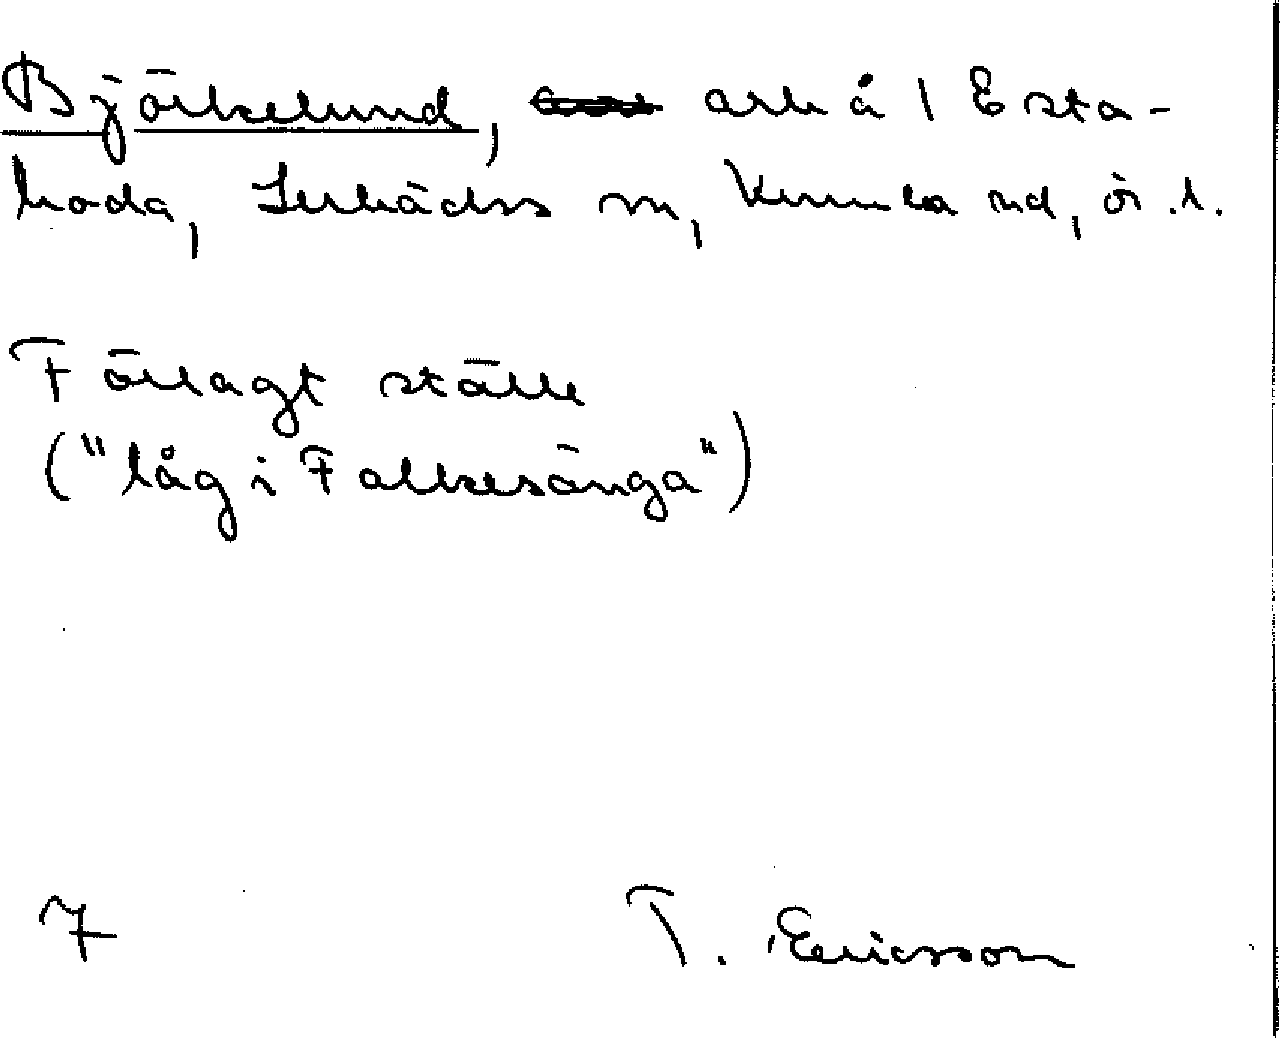 Björkelund, avs å 1 Esta-
boda, Lerbäcks sn, Kumla hd, ör.l.
Förlagt ställe
("låg i Falkesänga")
7
T. Ericsson